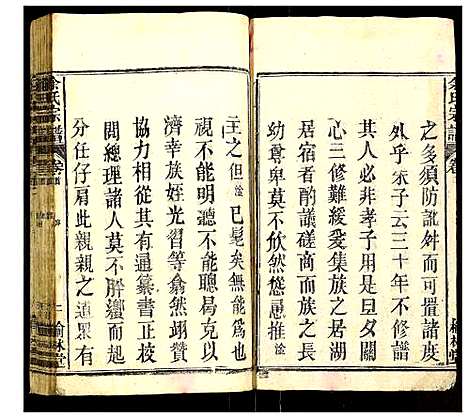 余氏宗譜
卷
之多須防訛舛而可置諸度
外乎朱子云三十年不修譜
其人必非孝子用是旦夕關
心三修難緩爰集族之居湖
居宿者酌議磋商而族之長
幼尊卑莫不欣然慫恿推淦
主之但淦已髦矣無能為也
視不能明聽不能聰曷克有
濟幸族姪光習等僉然翊贊
協力相從有通纂書正校
閱總理諸人莫不胼胝而起
分任仔肩此親親之道果有
余氏宗譜
卷首
二
榆林堂